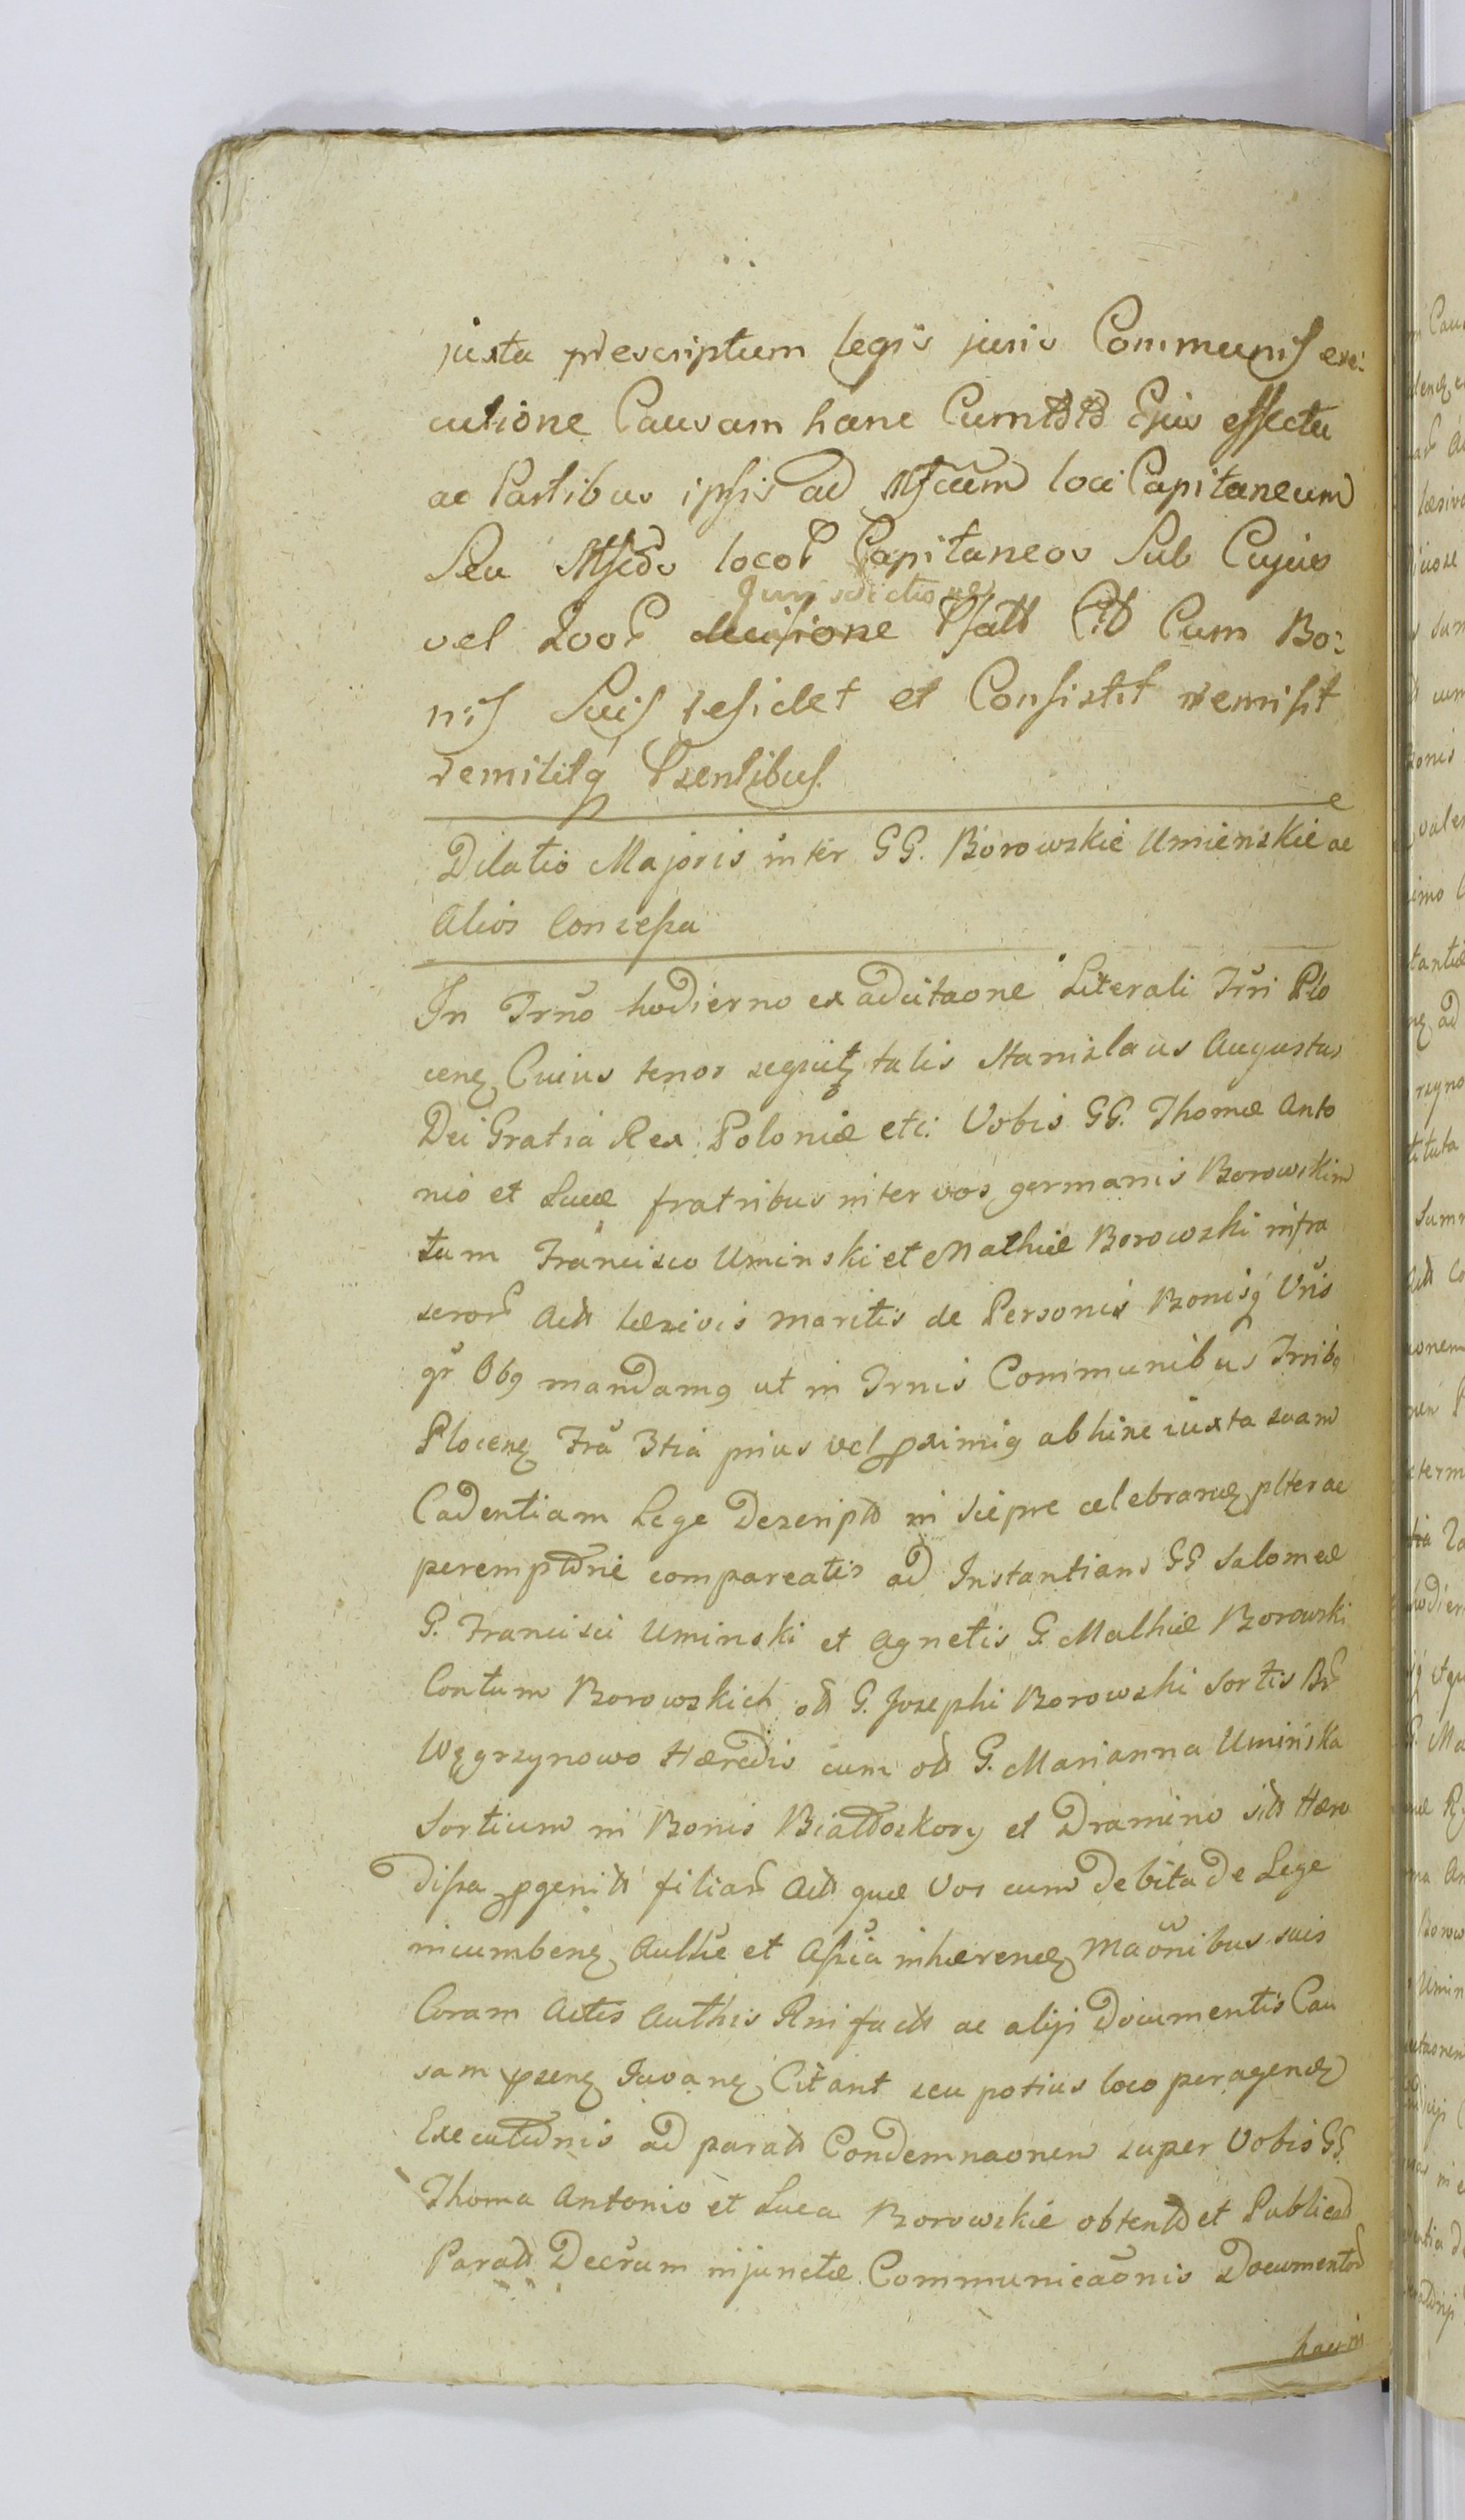 juxta prescriptum legis juris Communis exe:
cutione Causam hanc Cum Ejus effectu
ac Partibus ipsis ad loci Capitaneum
Seu Capitaneos Sub Cujus
Jurisdictione
vel Cum Bo:
nis Suis residet et Consistit remisit
remititq
Dilatio Majoris inter GG. Borowskie Uminskie ac
Alios Concessa
In Trno hodierno ex adcitaone Literali Trri Plo
cenę Cuius tenor sequitę talis Stanislaus Augustus
Dei Gratia Rex Poloniæ etc: Vobis GG. Thomæ Anto
nio et Lucæ fratribus inter vos germanis Borowskim
tum Francisco Uminski et Mathiæ Borowski infra
Act læsivis maritis de Personis Bonisq Vris
gr Obq mandamq ut in Trnis Communibus Trribq
Plocenę prius vel pximiq abhinc iuxta suam
Cadentiam Lege Descript in Siepre celebranę plter ac
peremptorie compareatis ad Instantiam GG Salomeæ
G. Francisci Uminski et Agnetis G. Mathiæ Borowski
Contum Borowskich olt G. Josephi Borowski Sortis Br
Węgrzynowo Hæredis cum olt G. Marianna Umińska
Sortium in Bonis Białoskory et Dramino sitt Hære
dissa pgenitt filiar Act quæ Vos cum Debita De Lege
incumbenę Authe et Assia inhærendę Maonibus suis
Coram Actis Authis Rni factt ac alijs Documentis Cau
sam psenę Iuvanę Citant seu potius loco peragendę
Executionis ad paratt Condemnaonem super Vobis GG.
Thoma Antonio et Luca Borowskie obtentt et Publicatt
Paratt Decrum injunctæ Communicaonis Documentor